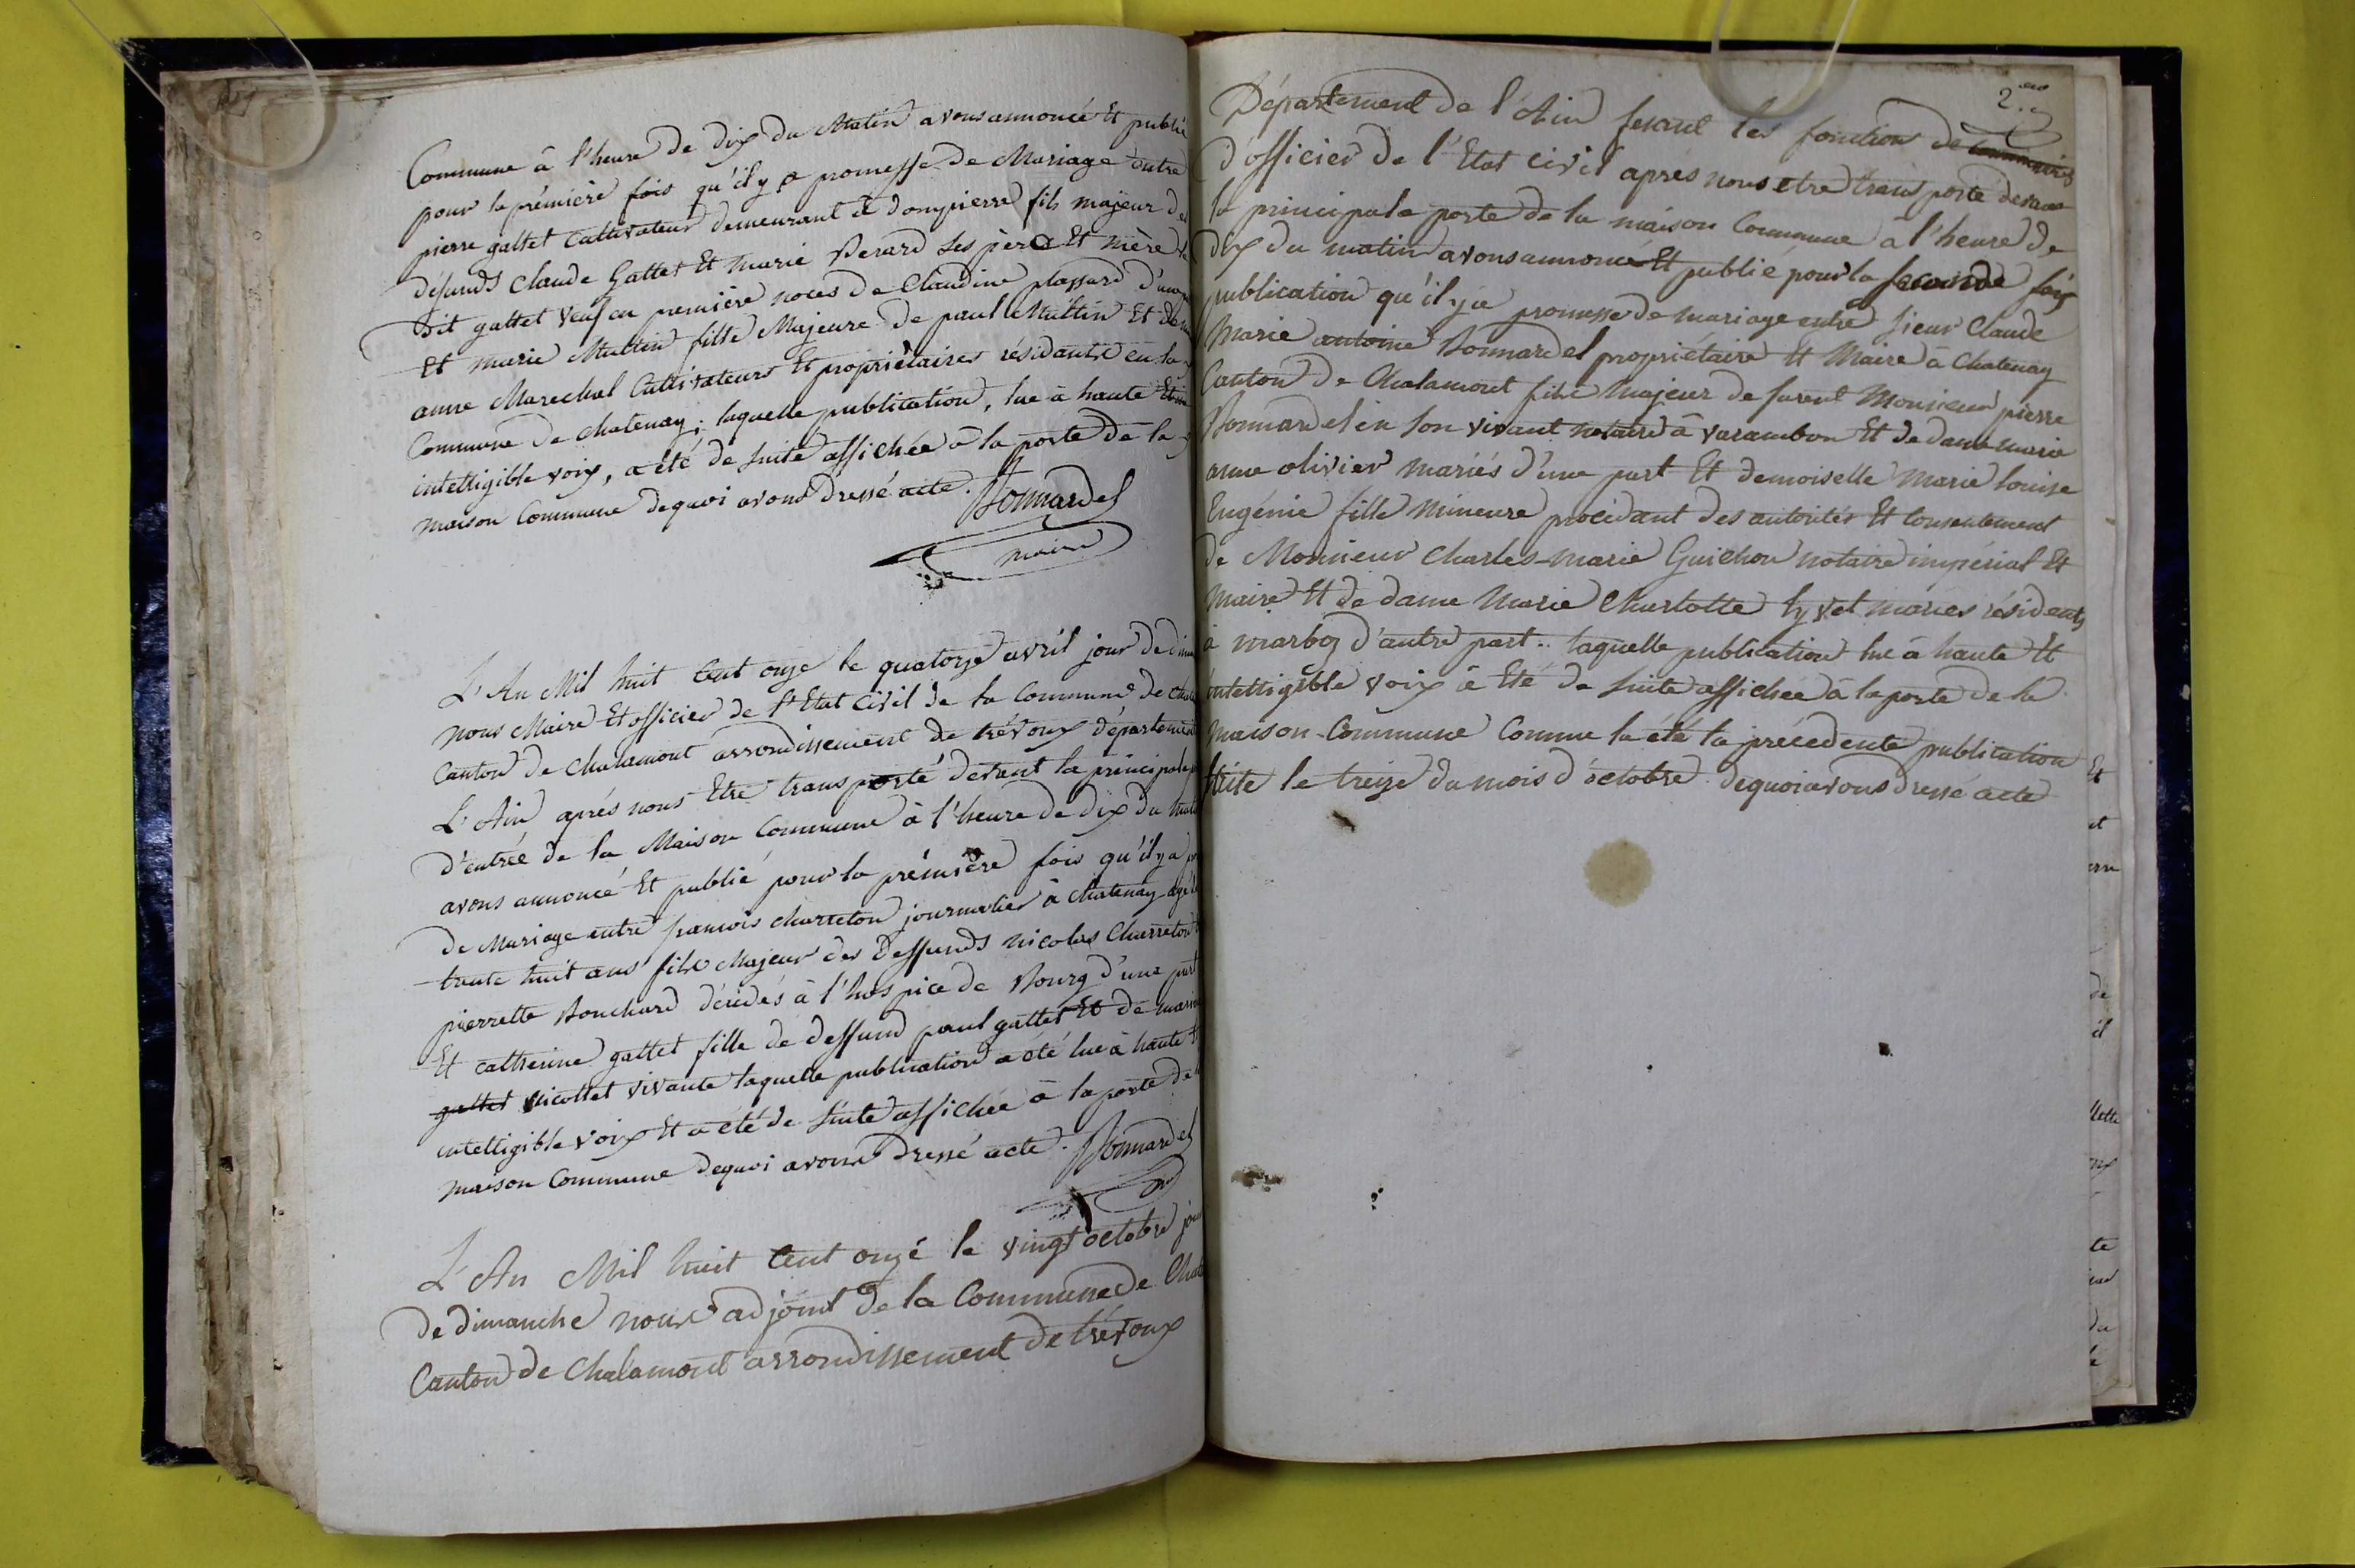 Commune à l'heure de dix du Matin avons annoncé Et publié
pour la prémière fois qu'il y a promesse de Mariage entre
pierre gattet Cultivateur demeurant à dompierre fils majeur de
défunds Claude Gattet Et marie Perard ses père Et mère
dit gattet veuf en première noces de Claudine plassard d'une
Et marie Muttin fille Majeure de paul Muttin Et
anne Marechal Cultivateurs Et propriétaires résidants en la
Commune de chatenay; laquelle publication, lue à haute Et
intelligible voix, a été de suite affichée à la porte de la
maison Commune dequoi avons dressé acte. Bonnardel
maire
L'An Mil huit Cent onze le quatorze avril jour de
nous Maire Et officier de l'Etat Civil de la Commune de
Canton de Chalamont arrondissement de trévoux département
L'Ain après nous Etre transporté devant la principale
d'entrée de la Maison Commune à l'heure de dix du
avons annoncé Et publié pour la prémière fois qu'il y a
de Mariage entre francois charreton journalier à Chatenay agé
trente huit ans fils Majeur des deffunds nicolas Charreton
pierrette Bouchard décédés à l'hospice de Bourg d'une part
Et catherine gattet fille de deffund paul gattet Et de marie
gattet Nicottet vivante laquelle publication a été lue à haute
intelligible voix Et a été de suite affichée à la porte de
maison Commune dequoi avons dressé acte. Bonnardel
L'An Mil huit Cent onze le vingt octobre jour
de dimanche nous adjoint de la Commune de
Canton de Chalamont arrondissement de trévoux
2
Département de l'Ain fesant les fonction de
d'officier de l'Etat civil après nous etre transporté devant
la principale porte de la maison Commune à l'heure de
dix du matin avons annoncé Et publié pour la seconde fois
publication qu'il y a promesse de mariage entre sieur Claude
Marie antoine Bonnardel propriétaire Et Maire à Chatenay
Canton de Chalamont fils majeur de furent Monsieur pierre
Bonnardel en son vivant notaire à varambon Et de dame marie
anne olivier mariés d'une part Et demoiselle Marie louise
Eugénie fille mineure procédant des autorités Et consentement
de Monsieur Charles-marie Guichon notaire impérial Et
Maire Et de dame Marie Charlotte lyvet mariés résidents
à marboz d'autre part.. laquelle publication lue à haute Et
intelligible voix à Eté de suite affichée à la porte de la
maison-Commune Comme la été la précédente publication
faite le treize du mois d'octobre. dequoi avons dressé acte